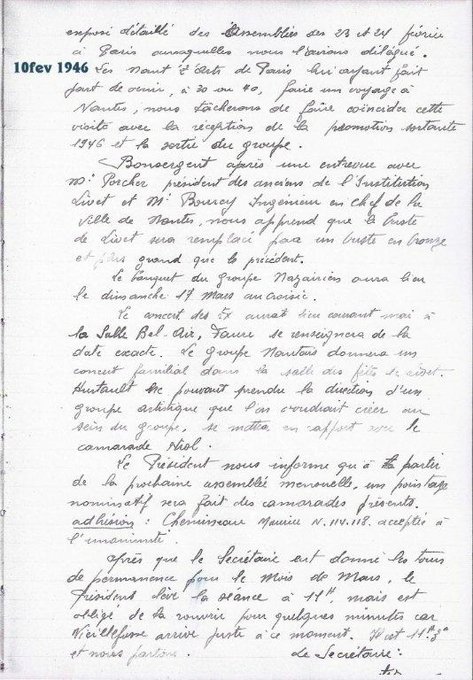 exposé détaillé des Assemblées des 23 et 24 février
à Paris auxquelles nous l'avions délégué.
10fev 1946
Les Nant d'Arts de Paris lui ayant fait
part de venir, à 30 ou 40, faire un voyage à
Nantes, nous tâcherons de faire coïncider cette
visite avec la réception de la promotion sortante
1946 et la sortie du groupe.
Bonsergent après une entrevue avec
Mr Porcher président des anciens de l'Institution
Livet et Mr Bourcy Ingénieur en Chef de la
Ville de Nantes, nous apprend que le buste
de Livet sera remplacé par un buste en bronze
et plus grand que le précédent.
Le banquet du groupe Nazairien aura lieu
le dimanche 17 Mars au Croisic.
Le concert des aurait lieu courant mai à
la Salle Bel-Air, Faure se renseignera de la
date exacte. Le groupe Nantais donnera un
concert familial dans la salle des fêtes de Livet.
Hurtault ne pouvant prendre la direction d'un
groupe artistique que l'on voudrait créer au
sein du groupe, se mettra en rapport avec le
camarade Niol.
Le Président nous informe qu'à partir
de la prochaine assemblée mensuelle, un pointage
nominatif sera fait des camarades présents.
adhésion : Maurice N. 114.118. acceptés à
l'unanimité.
Après que le Secrétaire est donné les tours
de permanence pour le Mois de Mars, le
Président lève la séance à 11H, mais est
obligé de la rouvrir pour quelques minutes car
Vieillefosse arrive juste à ce moment. Il est
et nous partons.
Le Secrétaire :